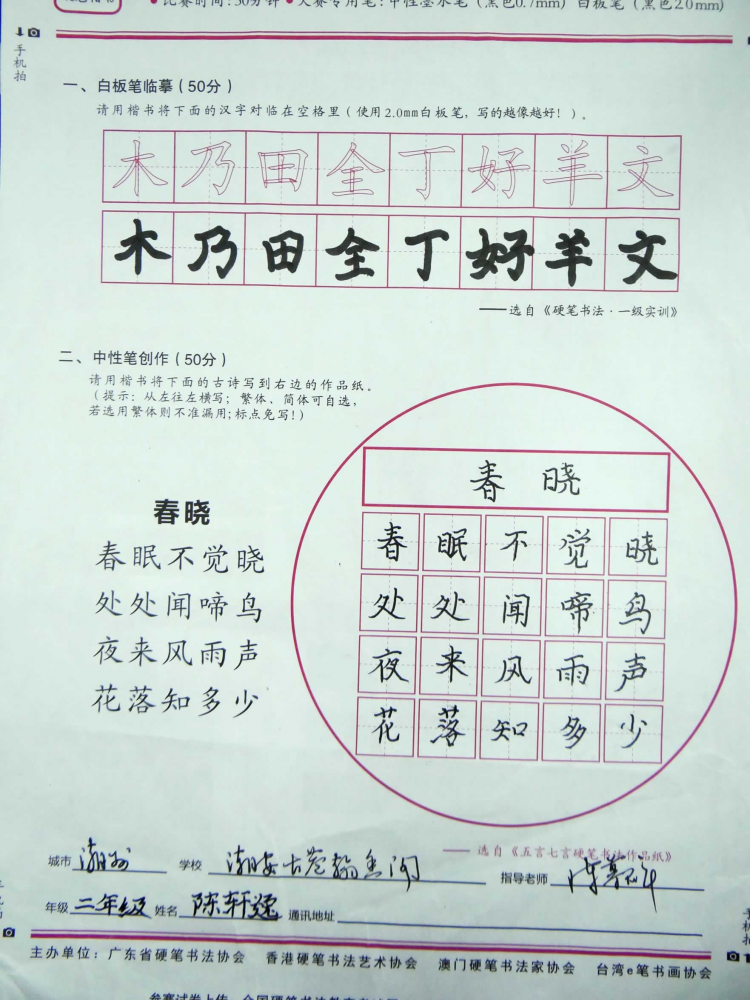 比赛时间:30分钟 •大赛专用笔:中性墨水笔(黑色0.7mm) 白板笔(黑色2.0mm)
手机拍
一、白板笔临摹(50分)
请用楷书将下面的汉字对临在空格里(使用2.0mm白板笔,写的越像越好!)。
木乃田全丁好羊文
木乃田全丁好羊文
——选自《硬笔书法·一级实训》
二、中性笔创作(50分)
请用楷书将下面的古诗写到右边的作品纸。
(提示:从左往左横写;繁体、简体可自选,
若选用繁体则不准漏用;标点免写!)
春晓
春眠不觉晓
处处闻啼鸟
夜来风雨声
花落知多少
春晓
春眠不觉晓
处处闻啼鸟
夜来风雨声
花落知多少
——选自《五言七言硬笔书法作品纸》
城市 潮州 学校 潮安古巷翰香阁 指导老师 陈
年级 二年级 姓名 陈轩逸 通讯地址
主办单位:广东省硬笔书法协会 香港硬笔书法艺术协会 澳门硬笔书法家协会 台湾e笔书画协会